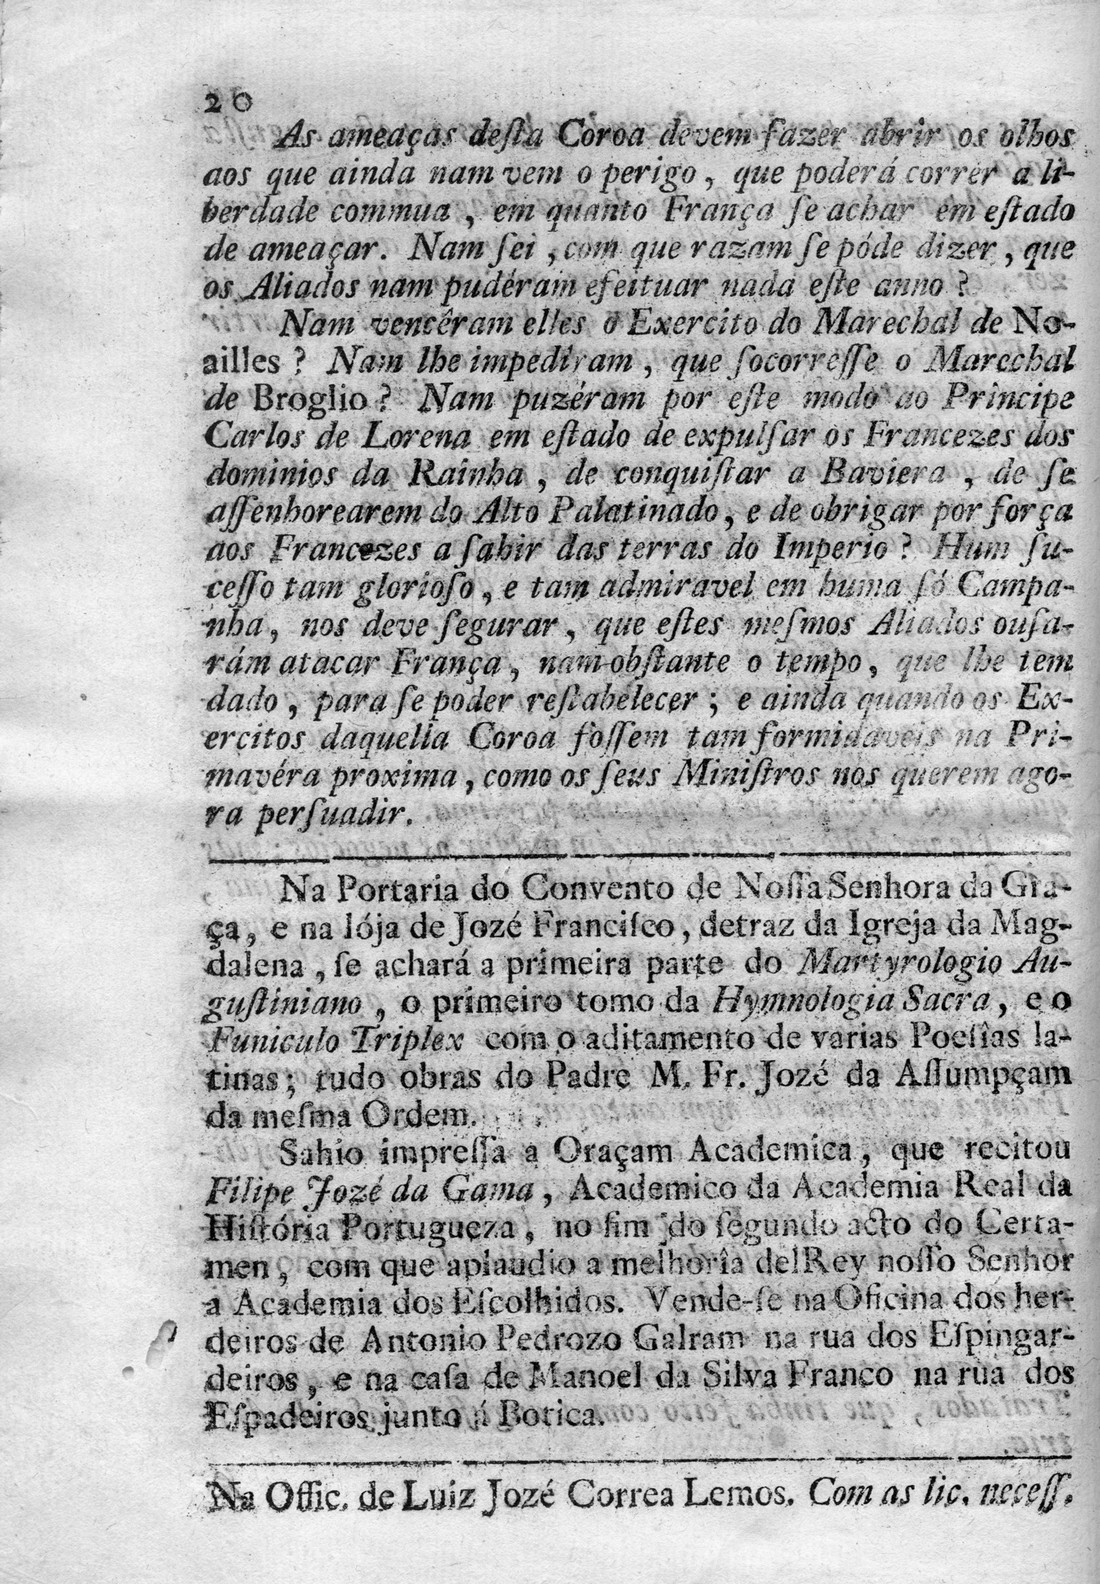 20
As ameaças deſta Coroa devem fazer abrir os olhos
aos que ainda nam vem o perigo, que poderá correr a li-
berdade commua, em quanto França ſe achar em eſtado
de ameaçar. Nam ſei, com que razam ſe póde dizer, que
os Aliados nam pudéram efeituar nada eſte anno?
Nam vencêram elles o Exercito do Marechal de No-
ailles? Nam lhe impediram, que ſocorreſſe o Marechal
de Broglio? Nam puzéram por eſte modo ao Principe
Carlos de Lorena em eſtado de expulſar os Francezes dos
dominios da Rainha, de conquiſtar a Baviera, de ſe
aſſenhorearem do Alto Palatinado, e de obrigar por força
aos Francezes a ſahir das terras do Imperio? Hum ſu-
ceſſo tam glorioſo, e tam admiravel em huma ſó Campa-
nha, nos deve ſegurar, que eſtes meſmos Aliados ouſa-
rám atacar França, nam obſtante o tempo, que lhe tem
dado, para ſe poder reſtabelecer; e ainda quando os Ex-
ercitos daquella Coroa foſſem tam formidaveis na Pri-
mavéra proxima, como os ſeus Miniſtros nos querem ago-
ra perſuadir.
Na Portaria do Convento de Noſſa Senhora da Gra-
ça, e na lója de Jozé Franciſco, detraz da Igreja da Mag-
dalena, ſe achará a primeira parte do Martyrologio Au-
guſtiniano, o primeiro tomo da Hymnologia Sacra, e o
Funiculo Triplex com o aditamento de varias Poeſias la-
tinas; tudo obras do Padre M. Fr. Jozé da Aſſumpçam
da meſma Ordem.
Sahio impreſſa a Oraçam Academica, que recitou
Filipe Jozé da Gama, Academico da Academia Real da
Hiſtória Portugueza, no fim do ſegundo acto do Certa-
men, com que aplaudio a melhoria delRey noſſo Senhor
a Academia dos Eſcolhidos. Vende-ſe na Oficina dos her-
deiros de Antonio Pedrozo Galram na rua dos Eſpingar-
deiros, e na caſa de Manoel da Silva Franco na rua dos
Eſpadeiros junto á Botica.
Na Offic. de Luiz Jozé Correa Lemos. Com as lic. neceſſ.